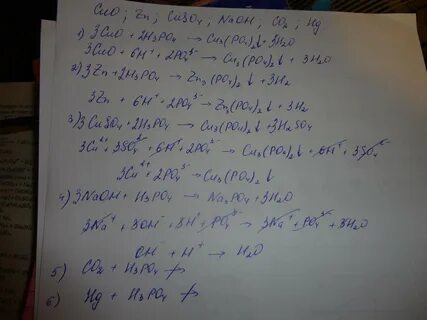 CuO; Zn; CuSO4; NaOH; CO2; Hg
1) 3CuO + 2H3PO4 → Cu3(PO4)2↓ + 3H2O
3CuO + 6H⁺ + 2PO4³⁻ → Cu3(PO4)2↓ + 3H2O
2) 3Zn + 2H3PO4 → Zn3(PO4)2↓ + 3H2
3Zn + 6H⁺ + 2PO4³⁻ → Zn3(PO4)2↓ + 3H2
3) 3CuSO4 + 2H3PO4 → Cu3(PO4)2↓ + 3H2SO4
3Cu²⁺ + 3SO4²⁻ + 6H⁺ + 2PO4³⁻ → Cu3(PO4)2↓ + 6H⁺ + 3SO4²⁻
3Cu²⁺ + 2PO4³⁻ → Cu3(PO4)2↓
4) 3NaOH + H3PO4 → Na3PO4 + 3H2O
3Na⁺ + 3OH⁻ + 3H⁺ + PO4³⁻ → 3Na⁺ + PO4³⁻ + 3H2O
OH⁻ + H⁺ → H2O
5) CO2 + H3PO4 ↛
6) Hg + H3PO4 ↛